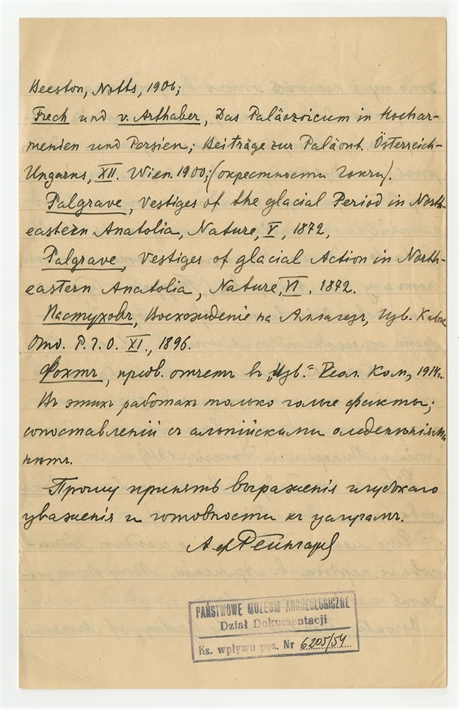 Beeston, Notts, 1906;
Frech und v. Arthaber, Das Paläozoicum in Hochar-
menien und Persien; Beiträge zur Paläont. Österreich-
Ungarns, XII. Wien 1900; (окрестности Гокчи).
Palgrave, Vestiges of the glacial Period in North-
eastern Anatolia, Nature, V, 1872,
Palgrave, Vestiges of glacial Action in North-
eastern Anatolia, Nature, VI. 1872.
Пастуховъ, Восхожденіе на Алагезъ, Изв. Кавк.
Отд. Р. Г. О. XI., 1896.
Фохтъ, отчетъ въ „Изв." Геол. Ком., 1914г.
Въ этихъ работахъ только голые факты;
сопоставленій съ альпійскими оледенѣніями
нѣтъ.
Прошу принять выраженія глубокаго
уваженія и готовности къ услугамъ.
А. ф Рейнгардъ
PAŃSTWOWE MUZEUM ARCHEOLOGICZNE
Dział Dokumentacji
Ks. wpływu poz. Nr 6205/54